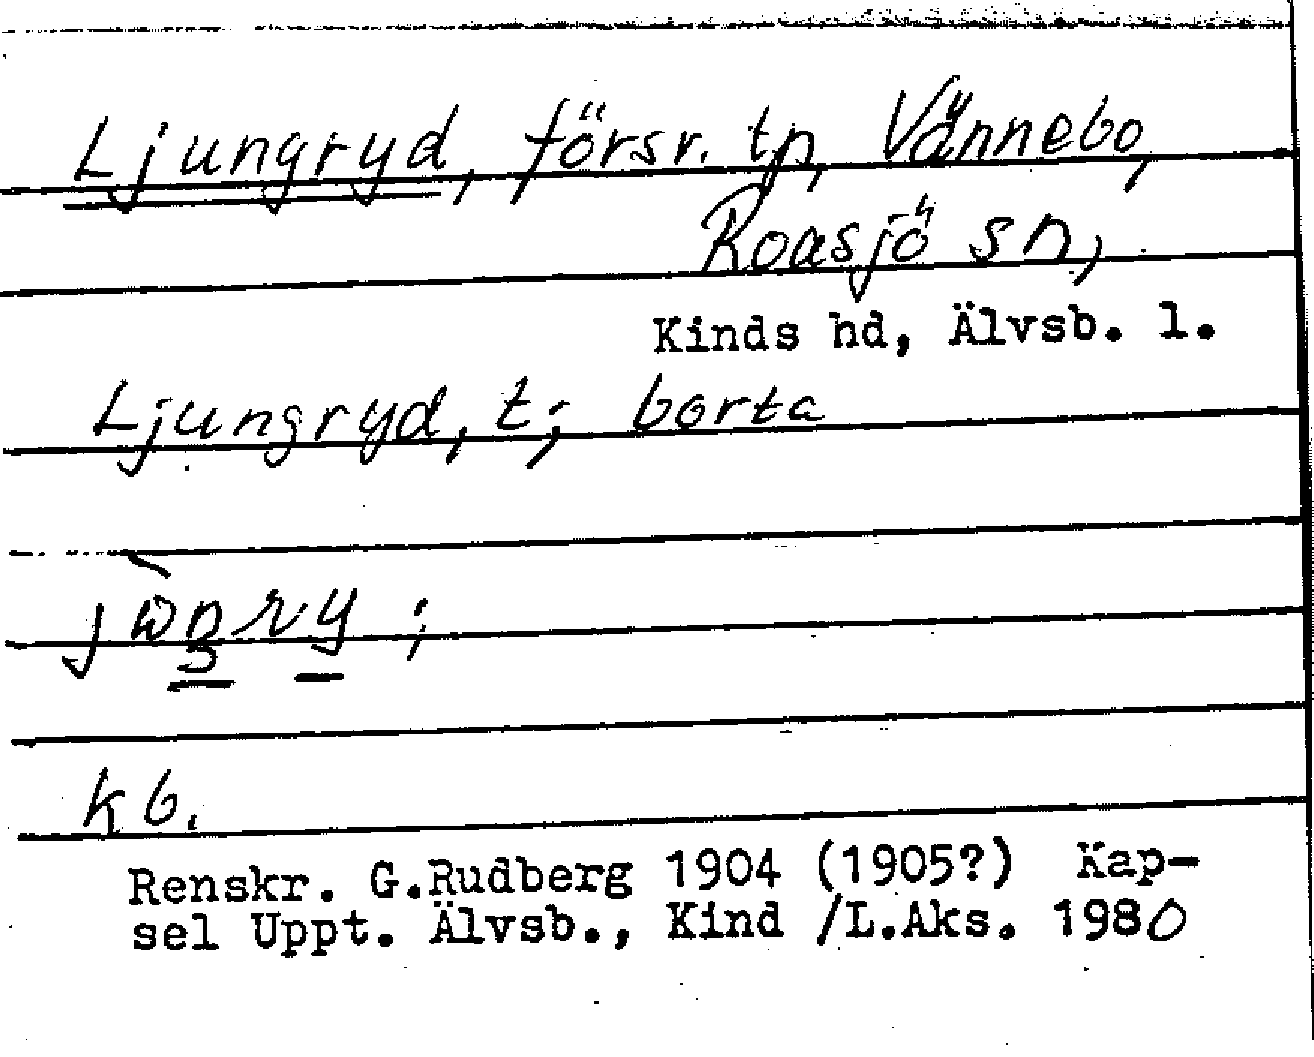 Ljungryd, försr. tp, Vännebo,
Roasjö sn,
Kinds hd, Älvsb. l.
Ljungryd, t; borta
kb.
Renskr. G.Rudberg 1904 (1905?) Kap-
sel Uppt. Älvsb., Kind /L.Aks. 1980